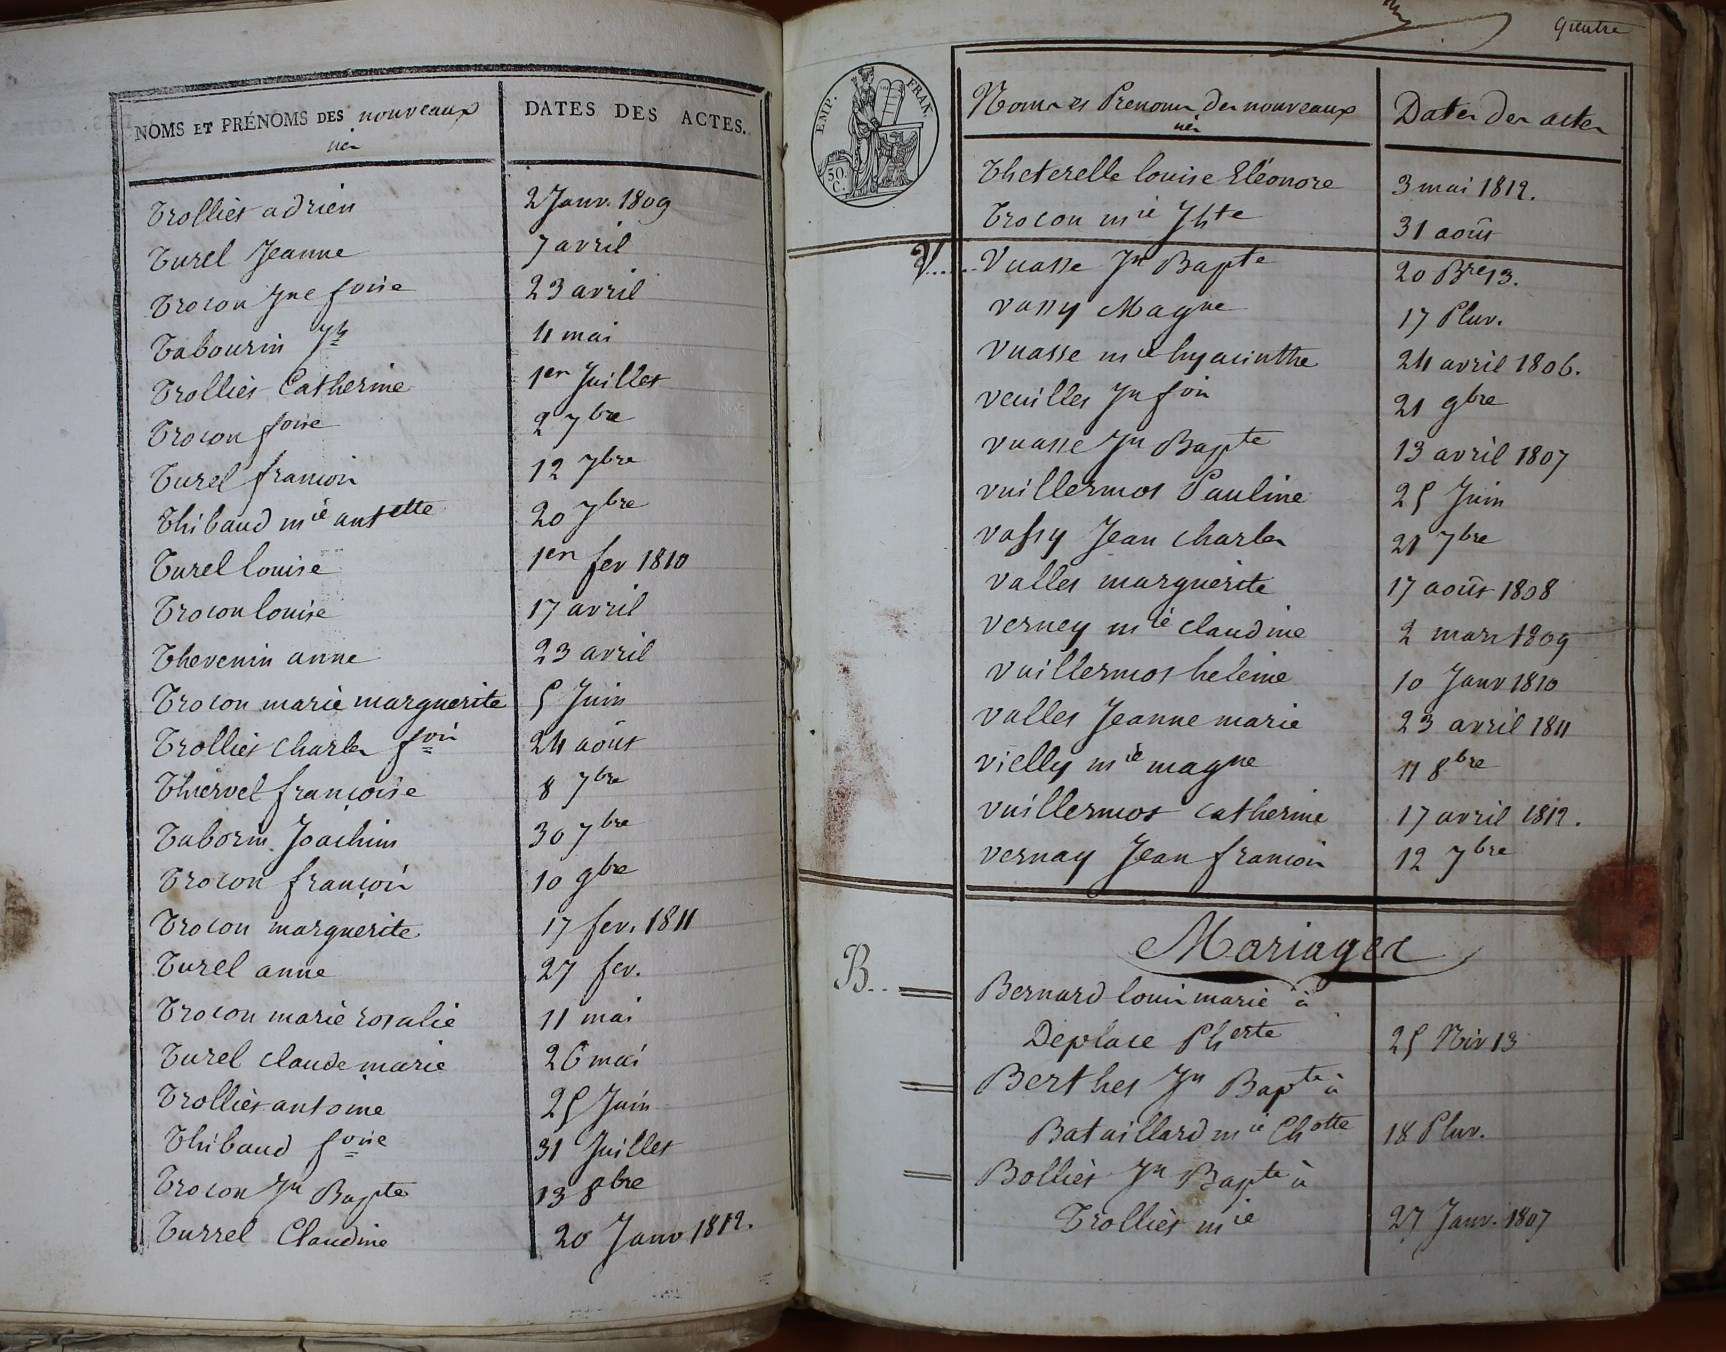 NOMS ET PRÉNOMS DES nouveaux DATES DES ACTES.
nés
Trolliet adrien 2 Janv. 1809
Turel Jeanne 7 avril
Trocon Jne foise 23 avril
Tabourin Jh 11 mai
Trolliet Catherine 1er Juillet
Trocon foise 2 7bre
Turel françois 12 7bre
Thibaud mie antette 20 7bre
Turel louise 1er fev 1810
Trocon louise 17 avril
Thevenin anne 23 avril
Trocon marie marguerite 5 Juin
Trolliet charles fois 24 août
Thiervel françoise 8 7bre
Taborin Joachim 30 7bre
Trocon françois 10 9bre
Trocon marguerite 17 fev. 1811
Turel anne 27 fev.
Trocon marie rosalie 11 mai
Turel claude marie 26 mai
Trolliet antoine 25 Juin
Thibaud foise 31 Juillet
Trocon Jn Bapte 13 8bre
Turrel Claudine 20 Janv 1812.
EMP. FRAN.
50. C.
Noms et Prenoms des nouveaux Dates des actes
nés
Theterelle louise Eléonore 3 mai 1812.
Trocon mie Jhte 31 août
V..... Vuasse Jn Bapte 20 Bre 13.
vassy Magne 17 Pluv.
Vuasse mie hyacinthe 24 avril 1806.
veuillet Jn fois 21 9bre
vuasse Jn Bapte 13 avril 1807
vuillermot Pauline 25 Juin
vassy Jean charles 21 7bre
vallet marguerite 17 août 1808
verney mie claudine 2 mars 1809
vuillermot heleine 10 Janv 1810
vallet Jeanne marie 23 avril 1811
vielly mie magne 11 8bre
vuillermot catherine 17 avril 1812.
vernay Jean françois 12 7bre
Mariages
B.. Bernard louis marie à
Deplace Pherte 25 Niv 13
Berthet Jn Bapte à
Bataillard mie Chotte 18 Pluv.
Bolliet Jn Bapte à
Trolliet mie 27 Janv. 1807